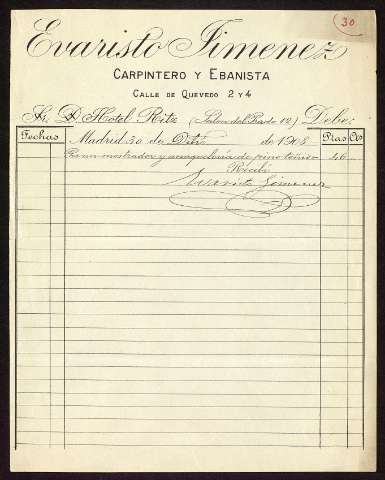 30
Evaristo Jimenez
CARPINTERO Y EBANISTA
CALLE DE QUEVEDO 2 Y 4
Sr. D. Hotel Ritz (Salon del Prado 12) Debe:
Fechas Ptas Cts
Madrid 30 de de 1908
Por un mostrador y anaqueleria de pino teñido 46
Recibi
Evaristo Jimenez